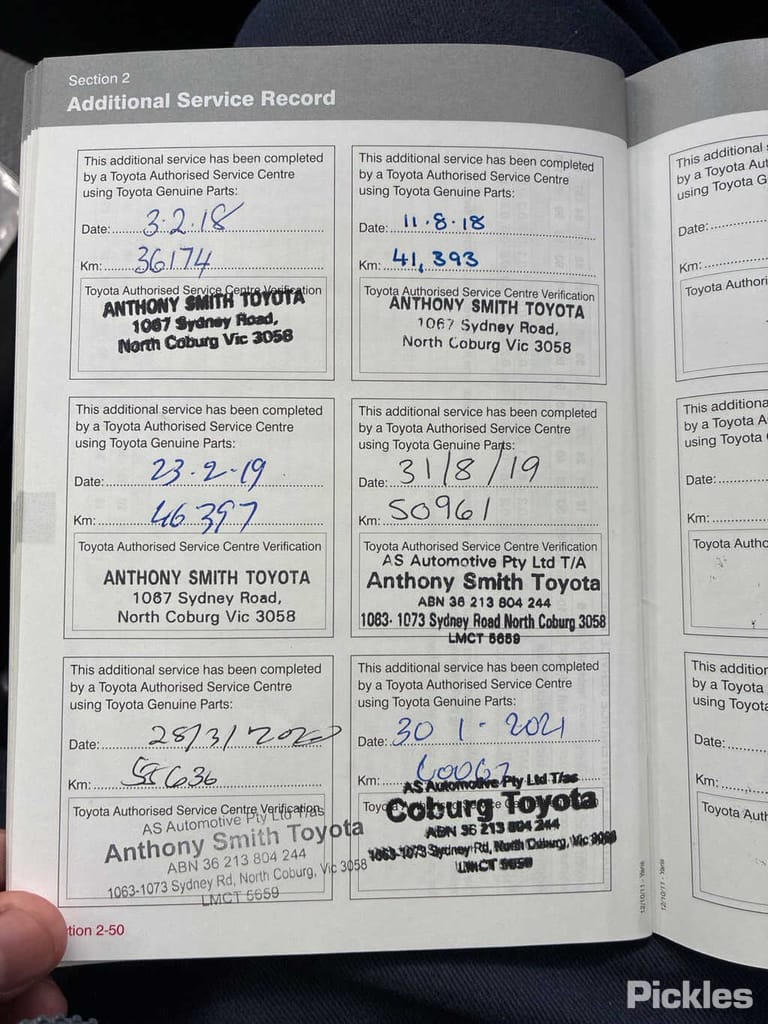 Section 2
Additional Service Record
This additional service has been completed
by a Toyota Authorised Service Centre
using Toyota Genuine Parts:
Date: 3.2.18
Km: 36174
Toyota Authorised Service Centre Verification
ANTHONY SMITH TOYOTA
1067 Sydney Road,
North Coburg Vic 3058
This additional service has been completed
by a Toyota Authorised Service Centre
using Toyota Genuine Parts:
Date: 11.8.18
Km: 41,393
Toyota Authorised Service Centre Verification
ANTHONY SMITH TOYOTA
1067 Sydney Road,
North Coburg Vic 3058
This additional service has been completed
by a Toyota Authorised Service Centre
using Toyota Genuine Parts:
Date: 23.2.19
Km: 46397
Toyota Authorised Service Centre Verification
ANTHONY SMITH TOYOTA
1067 Sydney Road,
North Coburg Vic 3058
This additional service has been completed
by a Toyota Authorised Service Centre
using Toyota Genuine Parts:
Date: 31/8/19
Km: 50961
Toyota Authorised Service Centre Verification
AS Automotive Pty Ltd T/A
Anthony Smith Toyota
ABN 36 213 804 244
1063-1073 Sydney Road North Coburg 3058
LMCT 5659
This additional service has been completed
by a Toyota Authorised Service Centre
using Toyota Genuine Parts:
Date: 28/3/2020
Km: 55636
Toyota Authorised Service Centre Verification
AS Automotive Pty Ltd T/as
Anthony Smith Toyota
ABN 36 213 804 244
1063-1073 Sydney Rd, North Coburg, Vic 3058
LMCT 5659
This additional service has been completed
by a Toyota Authorised Service Centre
using Toyota Genuine Parts:
Date: 30 1-2021
Km: 60067
AS Automotive Pty Ltd T/as
Coburg Toyota
ABN 36 213 804 244
1063-1073 Sydney Rd, North Coburg, Vic 3058
LMCT 5659
tion 2-50
12/10/11 - Yaris
12/10/11 - Yaris
This additional
by a Toyota Aut
using Toyota G
Date:
Km:
Toyota Authori
This additiona
by a Toyota A
using Toyota
Date:
Km:
Toyota Autho
This addition
by a Toyota
using Toyota
Date:
Km:
Toyota Auth
Pickles